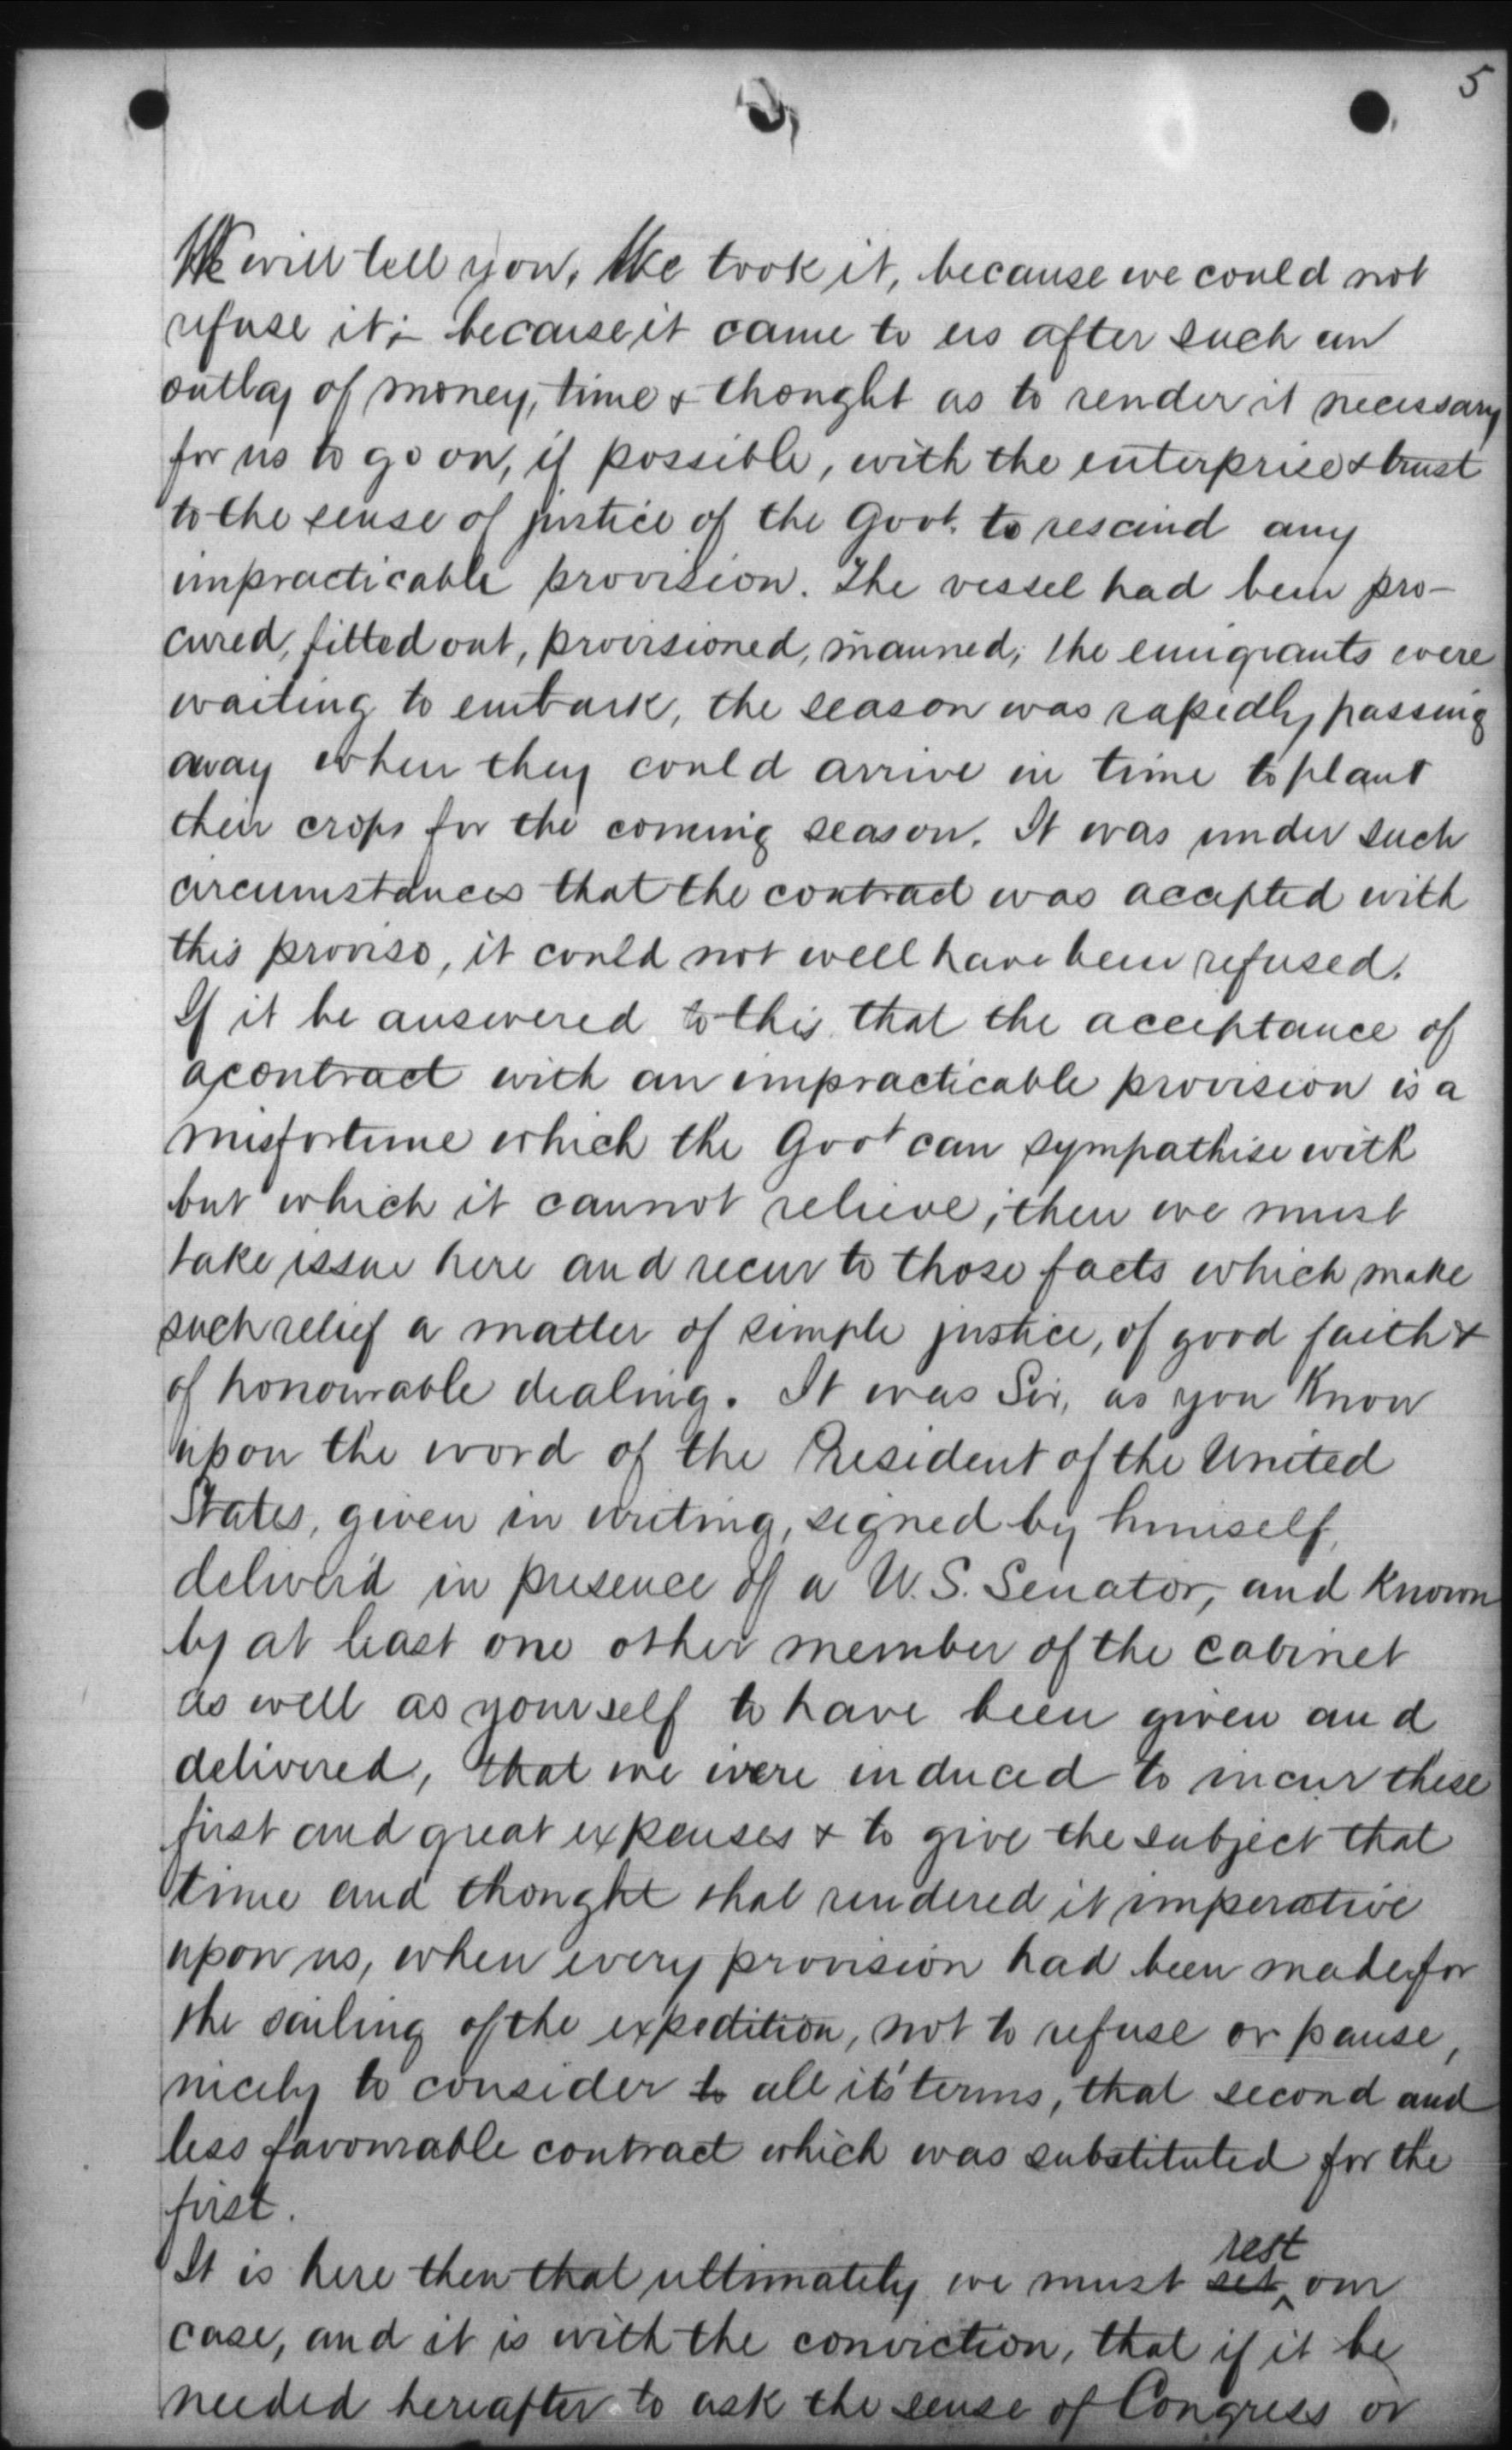 5
We will tell you, We took it, because we could not
refuse it;- because it came to us after such an
outlay of money, time & thought as to render it necessary
for us to go on, if possible, with the enterprise & trust
to the sense of justice of the Govt. to rescind any
impracticable provision. The vessel had been pro-
cured, fitted out, provisioned, manned, the emigrants were
waiting to embark, the season was rapidly passing
away when they could arrive in time to plant
their crops for the coming season. It was under such
circumstances that the contract was accepted with
this proviso, it could not well have been refused.
If it be answered to this that the acceptance of
a contract with an impracticable provision is a
misfortune which the Govt can sympathise with
but which it cannot relieve, then we must
take issue here and recur to those facts which make
such relief a matter of simple justice, of good faith &
of honourable dealing. It was Sir, as you know
upon the word of the President of the United
States, given in writing, signed by himself,
deliver'd in presence of a U.S. Senator, and known
by at least one other member of the cabinet
as well as yourself to have been given and
delivered, that we were induced to incur these
first and great expenses & to give the subject that
time and thought that rendered it imperative
upon us, when every provision had been made for
the sailing of the expedition, not to refuse or pause,
nicely to consider to all it's terms, that second and
less favourable contract which was substituted for the
first.
rest
It is here then that ultimately we must set our
case, and it is with the conviction, that if it be
needed hereafter to ask the sense of Congress or